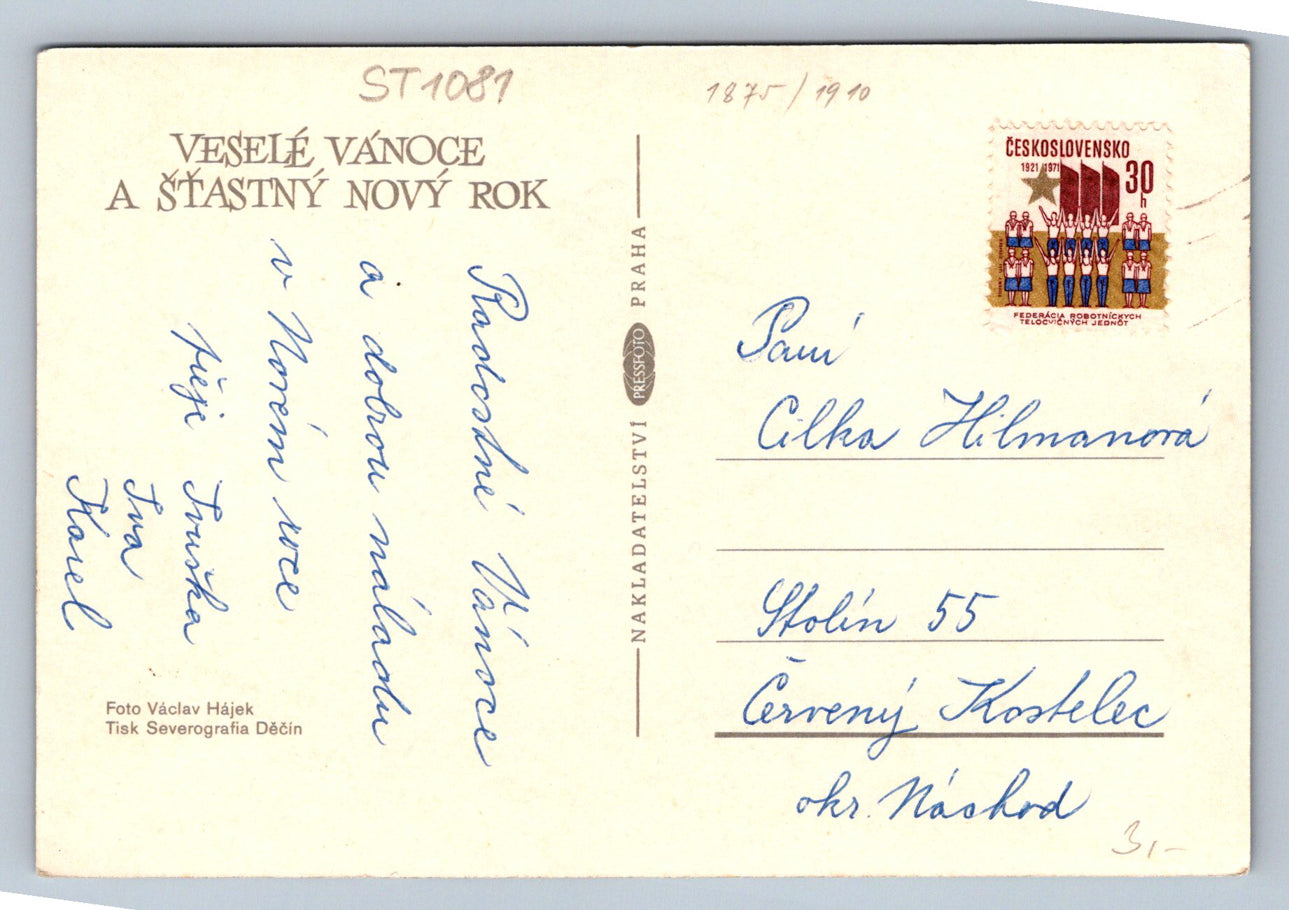 ST1081
VESELÉ VÁNOCE
A ŠŤASTNÝ NOVÝ ROK
Radostné Vánoce
a dobrou náladu
v Novém roce
přeje Ivuška
Iva
Karel
Foto Václav Hájek
Tisk Severografia Děčín
NAKLADATELSTVÍ PRESSFOTO PRAHA
1875/1910
ČESKOSLOVENSKO
1921 1971
30
h
FEDERÁCIA ROBOTNÍCKYCH
TELOCVIČNÝCH JEDNÔT
Paní
Cilka Hilmanová
Stolín 55
Červený Kostelec
okr. Náchod
3,-